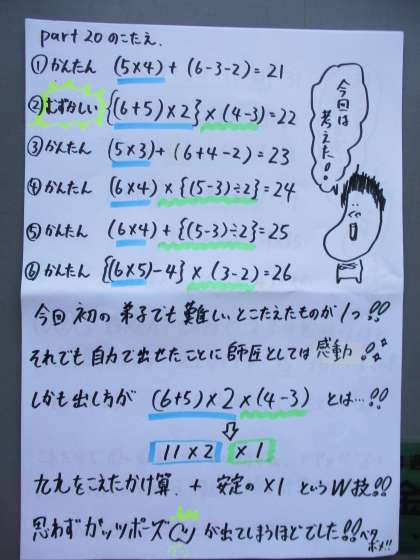 part 20 のこたえ.
①かんたん (5×4)+(6-3-2)=21
②むずかしい {(6+5)×2}×(4-3)=22
③かんたん (5×3)+(6+4-2)=23
④かんたん (6×4)×{(5-3)÷2}=24
⑤かんたん (6×4)+{(5-3)÷2}=25
⑥かんたん {(6×5)-4}×(3-2)=26
今回は
考えた!!
今回初の弟子でも難しいとこたえたものが1つ!!
それでも自力で出せたことに師匠としては感動!!
しかも出し方が (6+5)×2×(4-3) とは…!!
⇩
11×2 ×1
九九をこえたかけ算 + 安定の×1 というW技!!
思わずガッツポーズ が出てしまうほどでした!!ベタ
ボメ!!